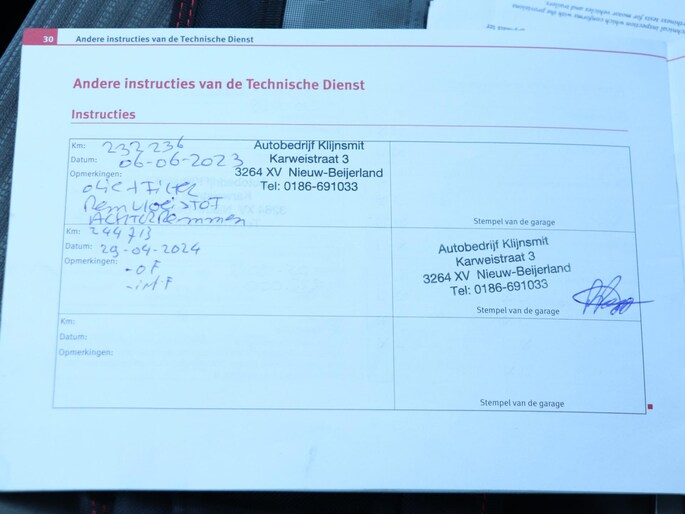 30 Andere instructies van de Technische Dienst
Andere instructies van de Technische Dienst
Instructies
Km: 232 236
Datum: 06-06-2023
Opmerkingen:
olie + Filter
Remvloeistof
ACHTERRemmen
Autobedrijf Klijnsmit
Karweistraat 3
3264 XV Nieuw-Beijerland
Tel: 0186-691033
Stempel van de garage
Km: 244 713
Datum: 29-04-2024
Opmerkingen:
- OF
- iMF
Autobedrijf Klijnsmit
Karweistraat 3
3264 XV Nieuw-Beijerland
Tel: 0186-691033
Stempel van de garage
Km:
Datum:
Opmerkingen:
Stempel van de garage